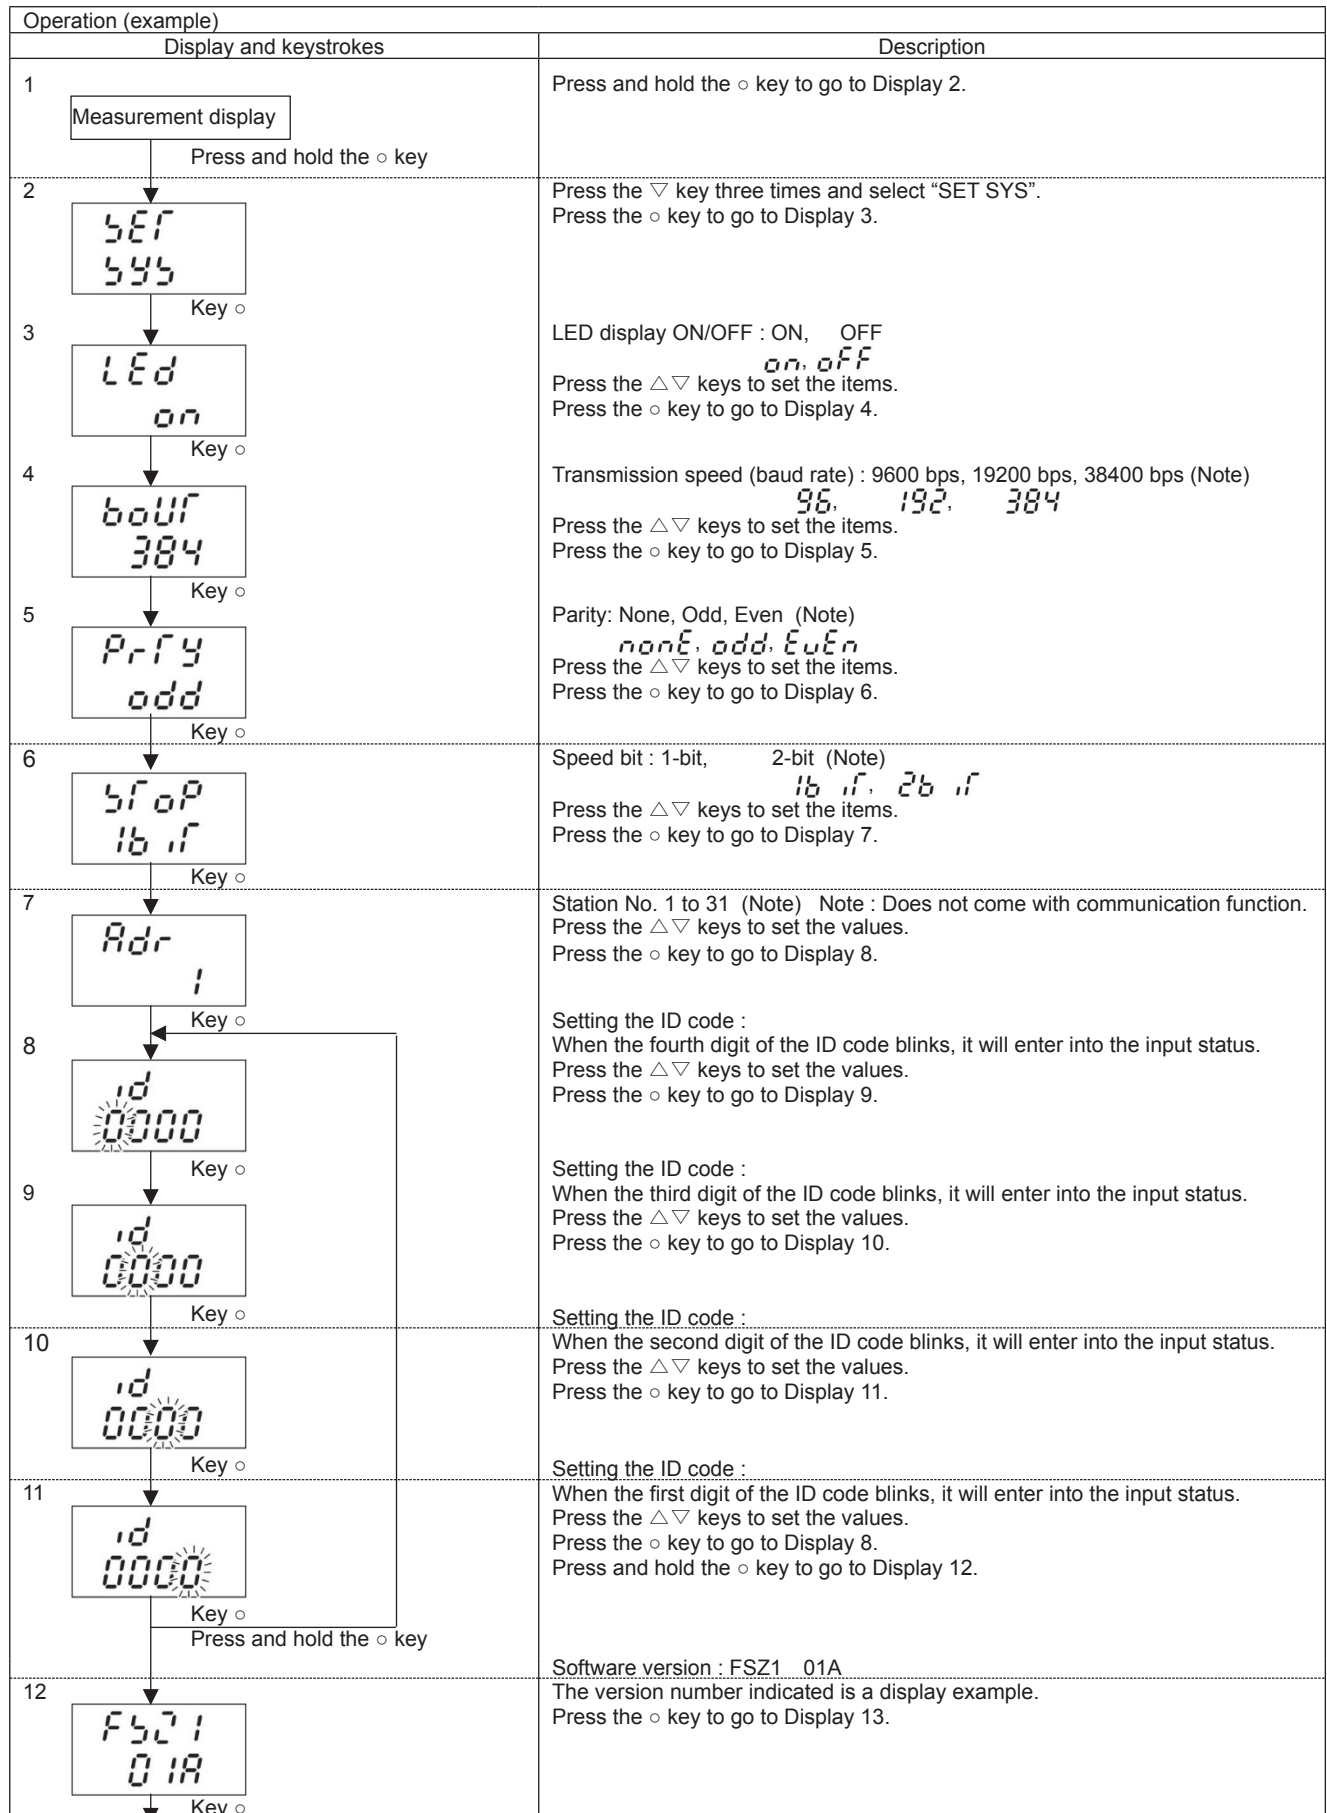 Operation (example)
Display and keystrokes
Description
1
Measurement display
Press and hold the ○ key
Press and hold the ○ key to go to Display 2.
2
SET
SYS
Key ○
Press the ▽ key three times and select “SET SYS”.
Press the ○ key to go to Display 3.
3
LEd
on
Key ○
LED display ON/OFF : ON, OFF
on, oFF
Press the △▽ keys to set the items.
Press the ○ key to go to Display 4.
4
boUT
384
Key ○
Transmission speed (baud rate) : 9600 bps, 19200 bps, 38400 bps (Note)
96, 192, 384
Press the △▽ keys to set the items.
Press the ○ key to go to Display 5.
5
PrTY
odd
Key ○
Parity: None, Odd, Even (Note)
nonE, odd, EvEn
Press the △▽ keys to set the items.
Press the ○ key to go to Display 6.
6
SToP
1b iT
Key ○
Speed bit : 1-bit, 2-bit (Note)
1b iT, 2b iT
Press the △▽ keys to set the items.
Press the ○ key to go to Display 7.
7
Adr
1
Key ○
Station No. 1 to 31 (Note) Note : Does not come with communication function.
Press the △▽ keys to set the values.
Press the ○ key to go to Display 8.
8
id
0000
Key ○
Setting the ID code :
When the fourth digit of the ID code blinks, it will enter into the input status.
Press the △▽ keys to set the values.
Press the ○ key to go to Display 9.
9
id
0000
Key ○
Setting the ID code :
When the third digit of the ID code blinks, it will enter into the input status.
Press the △▽ keys to set the values.
Press the ○ key to go to Display 10.
10
id
0000
Key ○
Setting the ID code :
When the second digit of the ID code blinks, it will enter into the input status.
Press the △▽ keys to set the values.
Press the ○ key to go to Display 11.
11
id
0000
Key ○
Press and hold the ○ key
Setting the ID code :
When the first digit of the ID code blinks, it will enter into the input status.
Press the △▽ keys to set the values.
Press the ○ key to go to Display 8.
Press and hold the ○ key to go to Display 12.
12
FSZ1
01A
Key ○
Software version : FSZ1 01A
The version number indicated is a display example.
Press the ○ key to go to Display 13.